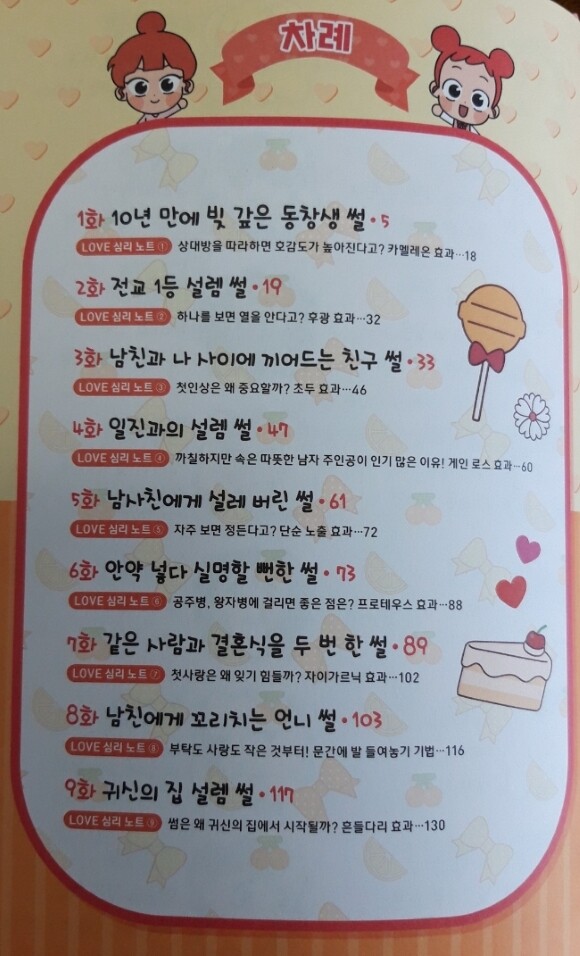 차례
1화 10년 만에 빚 갚은 동창생 썰 • 5
LOVE 심리 노트 ① 상대방을 따라하면 호감도가 높아진다고? 카멜레온 효과…18
2화 전교 1등 설렘 썰 • 19
LOVE 심리 노트 ② 하나를 보면 열을 안다고? 후광 효과…32
3화 남친과 나 사이에 끼어드는 친구 썰 • 33
LOVE 심리 노트 ③ 첫인상은 왜 중요할까? 초두 효과…46
4화 일진과의 설렘 썰 • 47
LOVE 심리 노트 ④ 까칠하지만 속은 따뜻한 남자 주인공이 인기 많은 이유! 게인 로스 효과…60
5화 남사친에게 설레 버린 썰 • 61
LOVE 심리 노트 ⑤ 자주 보면 정든다고? 단순 노출 효과…72
6화 안약 넣다 실명할 뻔한 썰 • 73
LOVE 심리 노트 ⑥ 공주병, 왕자병에 걸리면 좋은 점은? 프로테우스 효과…88
7화 같은 사람과 결혼식을 두 번 한 썰 • 89
LOVE 심리 노트 ⑦ 첫사랑은 왜 잊기 힘들까? 자이가르닉 효과…102
8화 남친에게 꼬리치는 언니 썰 • 103
LOVE 심리 노트 ⑧ 부탁도 사랑도 작은 것부터! 문간에 발 들여놓기 기법…116
9화 귀신의 집 설렘 썰 • 117
LOVE 심리 노트 ⑨ 썸은 왜 귀신의 집에서 시작될까? 흔들다리 효과…130